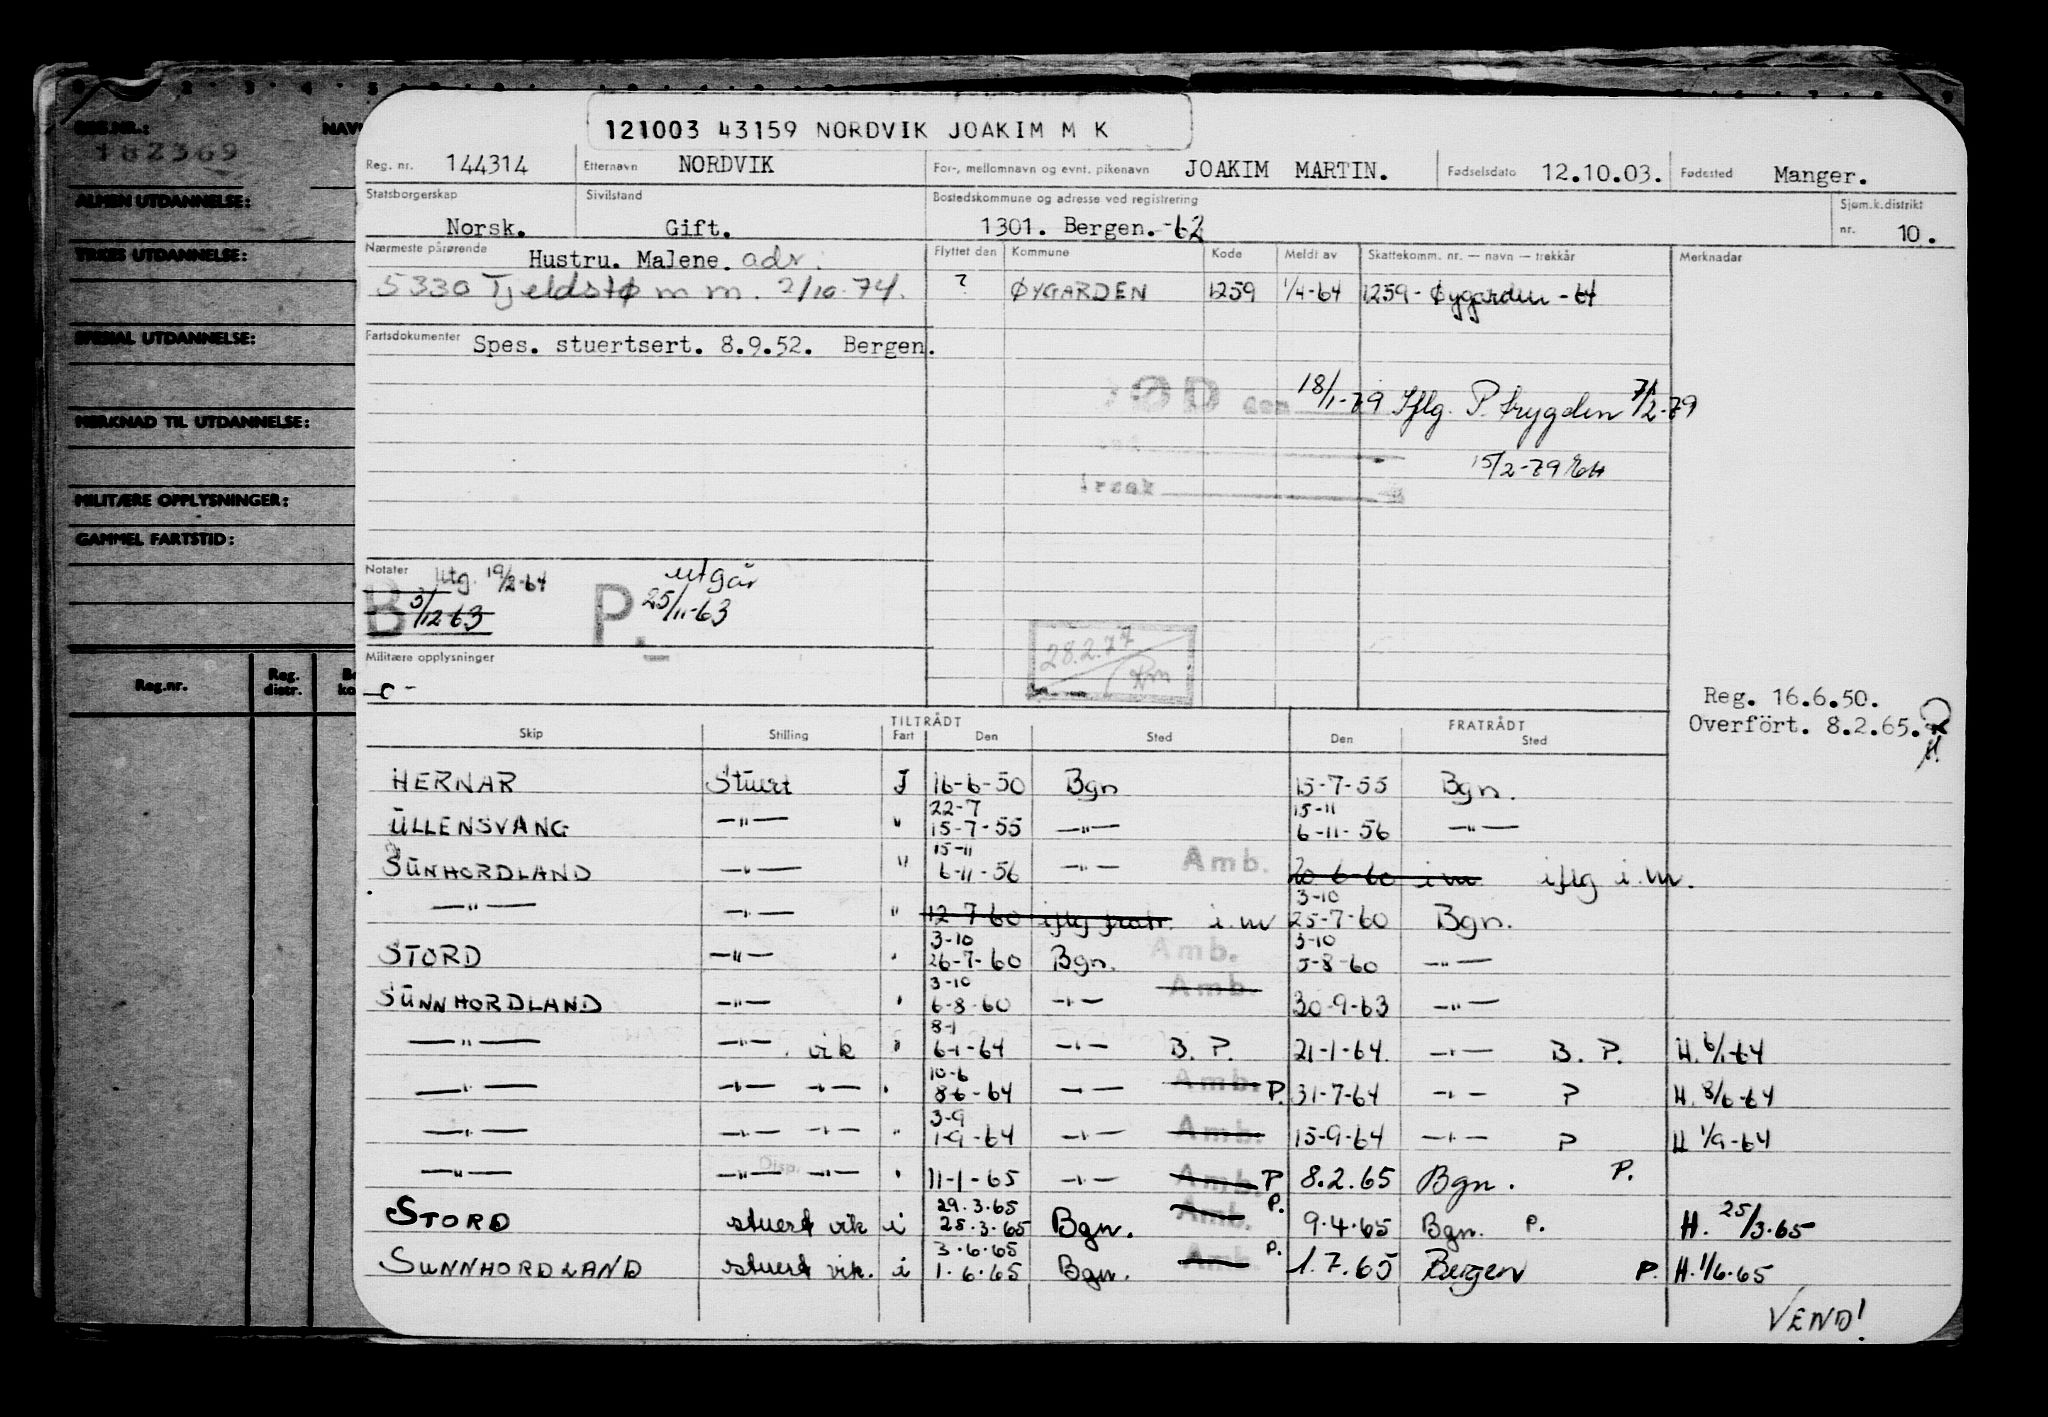 121003 43159 NORDVIK JOAKIM M K
REG.NR.: NAV
182369
ALMEN UTDANNELSE:
YRKES UTDANNELSE:
SPESIAL UTDANNELSE:
MERKNAD TIL UTDANNELSE:
MILITÆRE OPPLYSNINGER:
GAMMEL FARTSTID:
Reg.nr. Reg. distr.
Reg. nr. 144314 Etternavn NORDVIK For-, mellomnavn og evnt. pikenavn JOAKIM MARTIN. Fødselsdato 12.10.03. Fødested Manger.
Statsborgerskap Norsk. Sivilstand Gift. Bostedskommune og adresse ved registrering 1301. Bergen.-62 Sjøm.k.distrikt nr. 10.
Nærmeste pårørende Hustru. Malene. adr. Flyttet den Kommune Kode Meldt av Skattekomm. nr. — navn — trekkår Merknader
5330 Tjeldstø m m. 2/10-74. ? ØYGARDEN 1259 1/4-64 1259- Øygarden -64
Fartsdokumenter Spes. stuertsert. 8.9.52. Bergen.
DØD den 18/1-79 Iflg. P. trygden 7/2-79
15/2-79
Notater Utg. 19/2-64 utgår
B 3/12-63 P. 25/11-63
28.2.77
Militære opplysninger
Reg. 16.6.50.
Overført. 8.2.65.
TILTRÅDT FRATRÅDT
Skip Stilling Fart Den Sted Den Sted
HERNAR Stuert I 16-6-50 Bgn 15-7-55 Bgn.
22-7 15-11
ULLENSVANG —"— " 15-7-55 —"— 6-11-56 —"—
15-11
SUNHORDLAND —"— " 6-11-56 —"— Amb. 20-6-60 i.m. iflg i.m.
3-10
—"— —"— " 12-7-60 iflg fratr. i.m 25-7-60 Bgn.
3-10 3-10
STORD —"— " 26-7-60 Bgn. Amb. 5-8-60 —"—
3-10
SUNNHORDLAND —"— " 6-8-60 —"— Amb. 30-9-63 —"—
8-1
—"— —"— . vik " 6-1-64 —"— B. P. 21-1-64. —"— B. P. H. 6/1-64
10-6
—"— —"— —"— " 8-6-64 —"— Amb. P. 31-7-64 —"— P H. 8/6-64
3-9
—"— —"— —"— " 1-9-64 —"— Amb. 15-9-64 —"— P H 1/9-64
—"— —"— Disp. —"— " 11-1-65 —"— Amb. P 8.2.65 Bgn. P.
29.3.65
STORD stuert vik i 25.3.65 Bgn. Amb. P. 9.4.65 Bgn. P. H. 25/3.65
3.6.65
SUNNHORDLAND stuert vik. i 1.6.65 Bgn. Amb P. 1.7.65 Bergen P. H. 1/6.65
VEND!